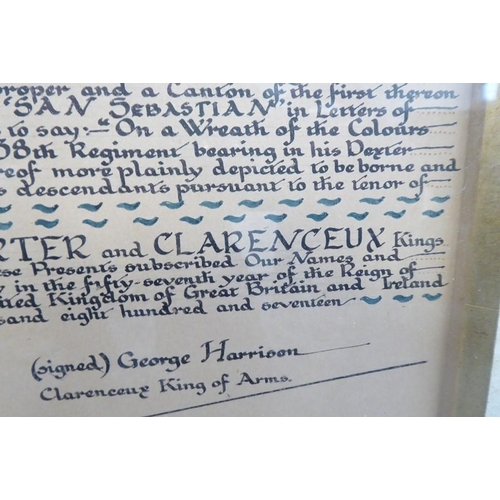 proper and a Canton of the first thereon
"SAN SEBASTIAN" in Letters of
to say:- "On a Wreath of the Colours
38th Regiment bearing in his Dexter
more plainly depicted to be borne and
descendants pursuant to the tenor of
and CLARENCEUX Kings
Presents subscribed Our Names and
in the fifty-seventh year of the Reign of
Kingdom of Great Britain and Ireland
eight hundred and seventeen
(signed) George Harrison
Clarenceux King of Arms.